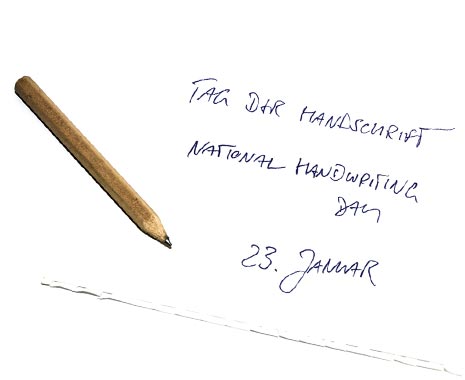 TAG DER HANDSCHRIFT
NATIONAL HANDWRITING
DAY
23. JANUAR